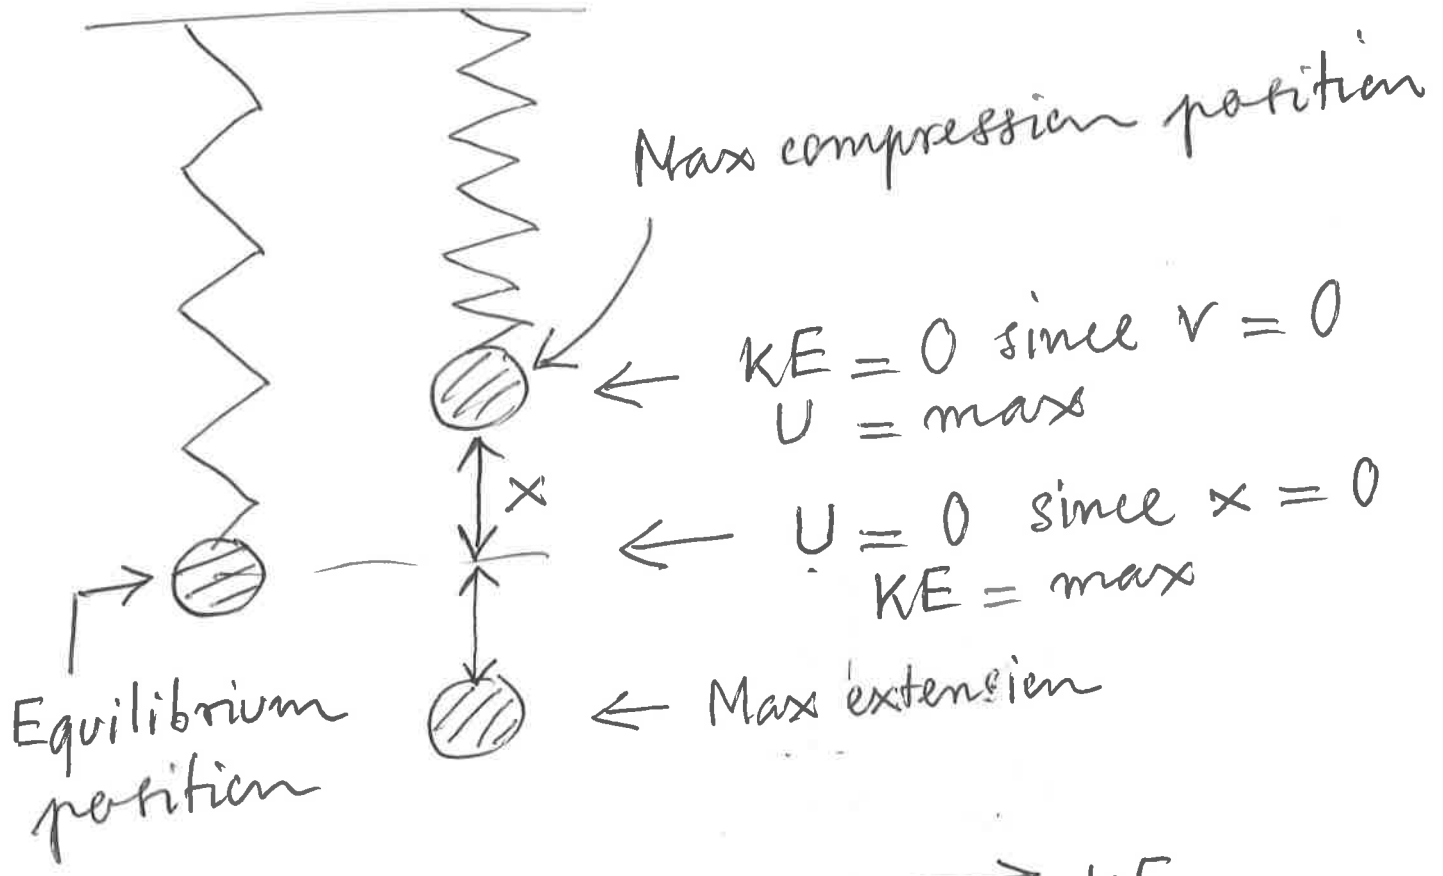 Max compression position
KE = 0 since v = 0
U = max
x
U = 0 since x = 0
KE = max
Max extension
Equilibrium
position